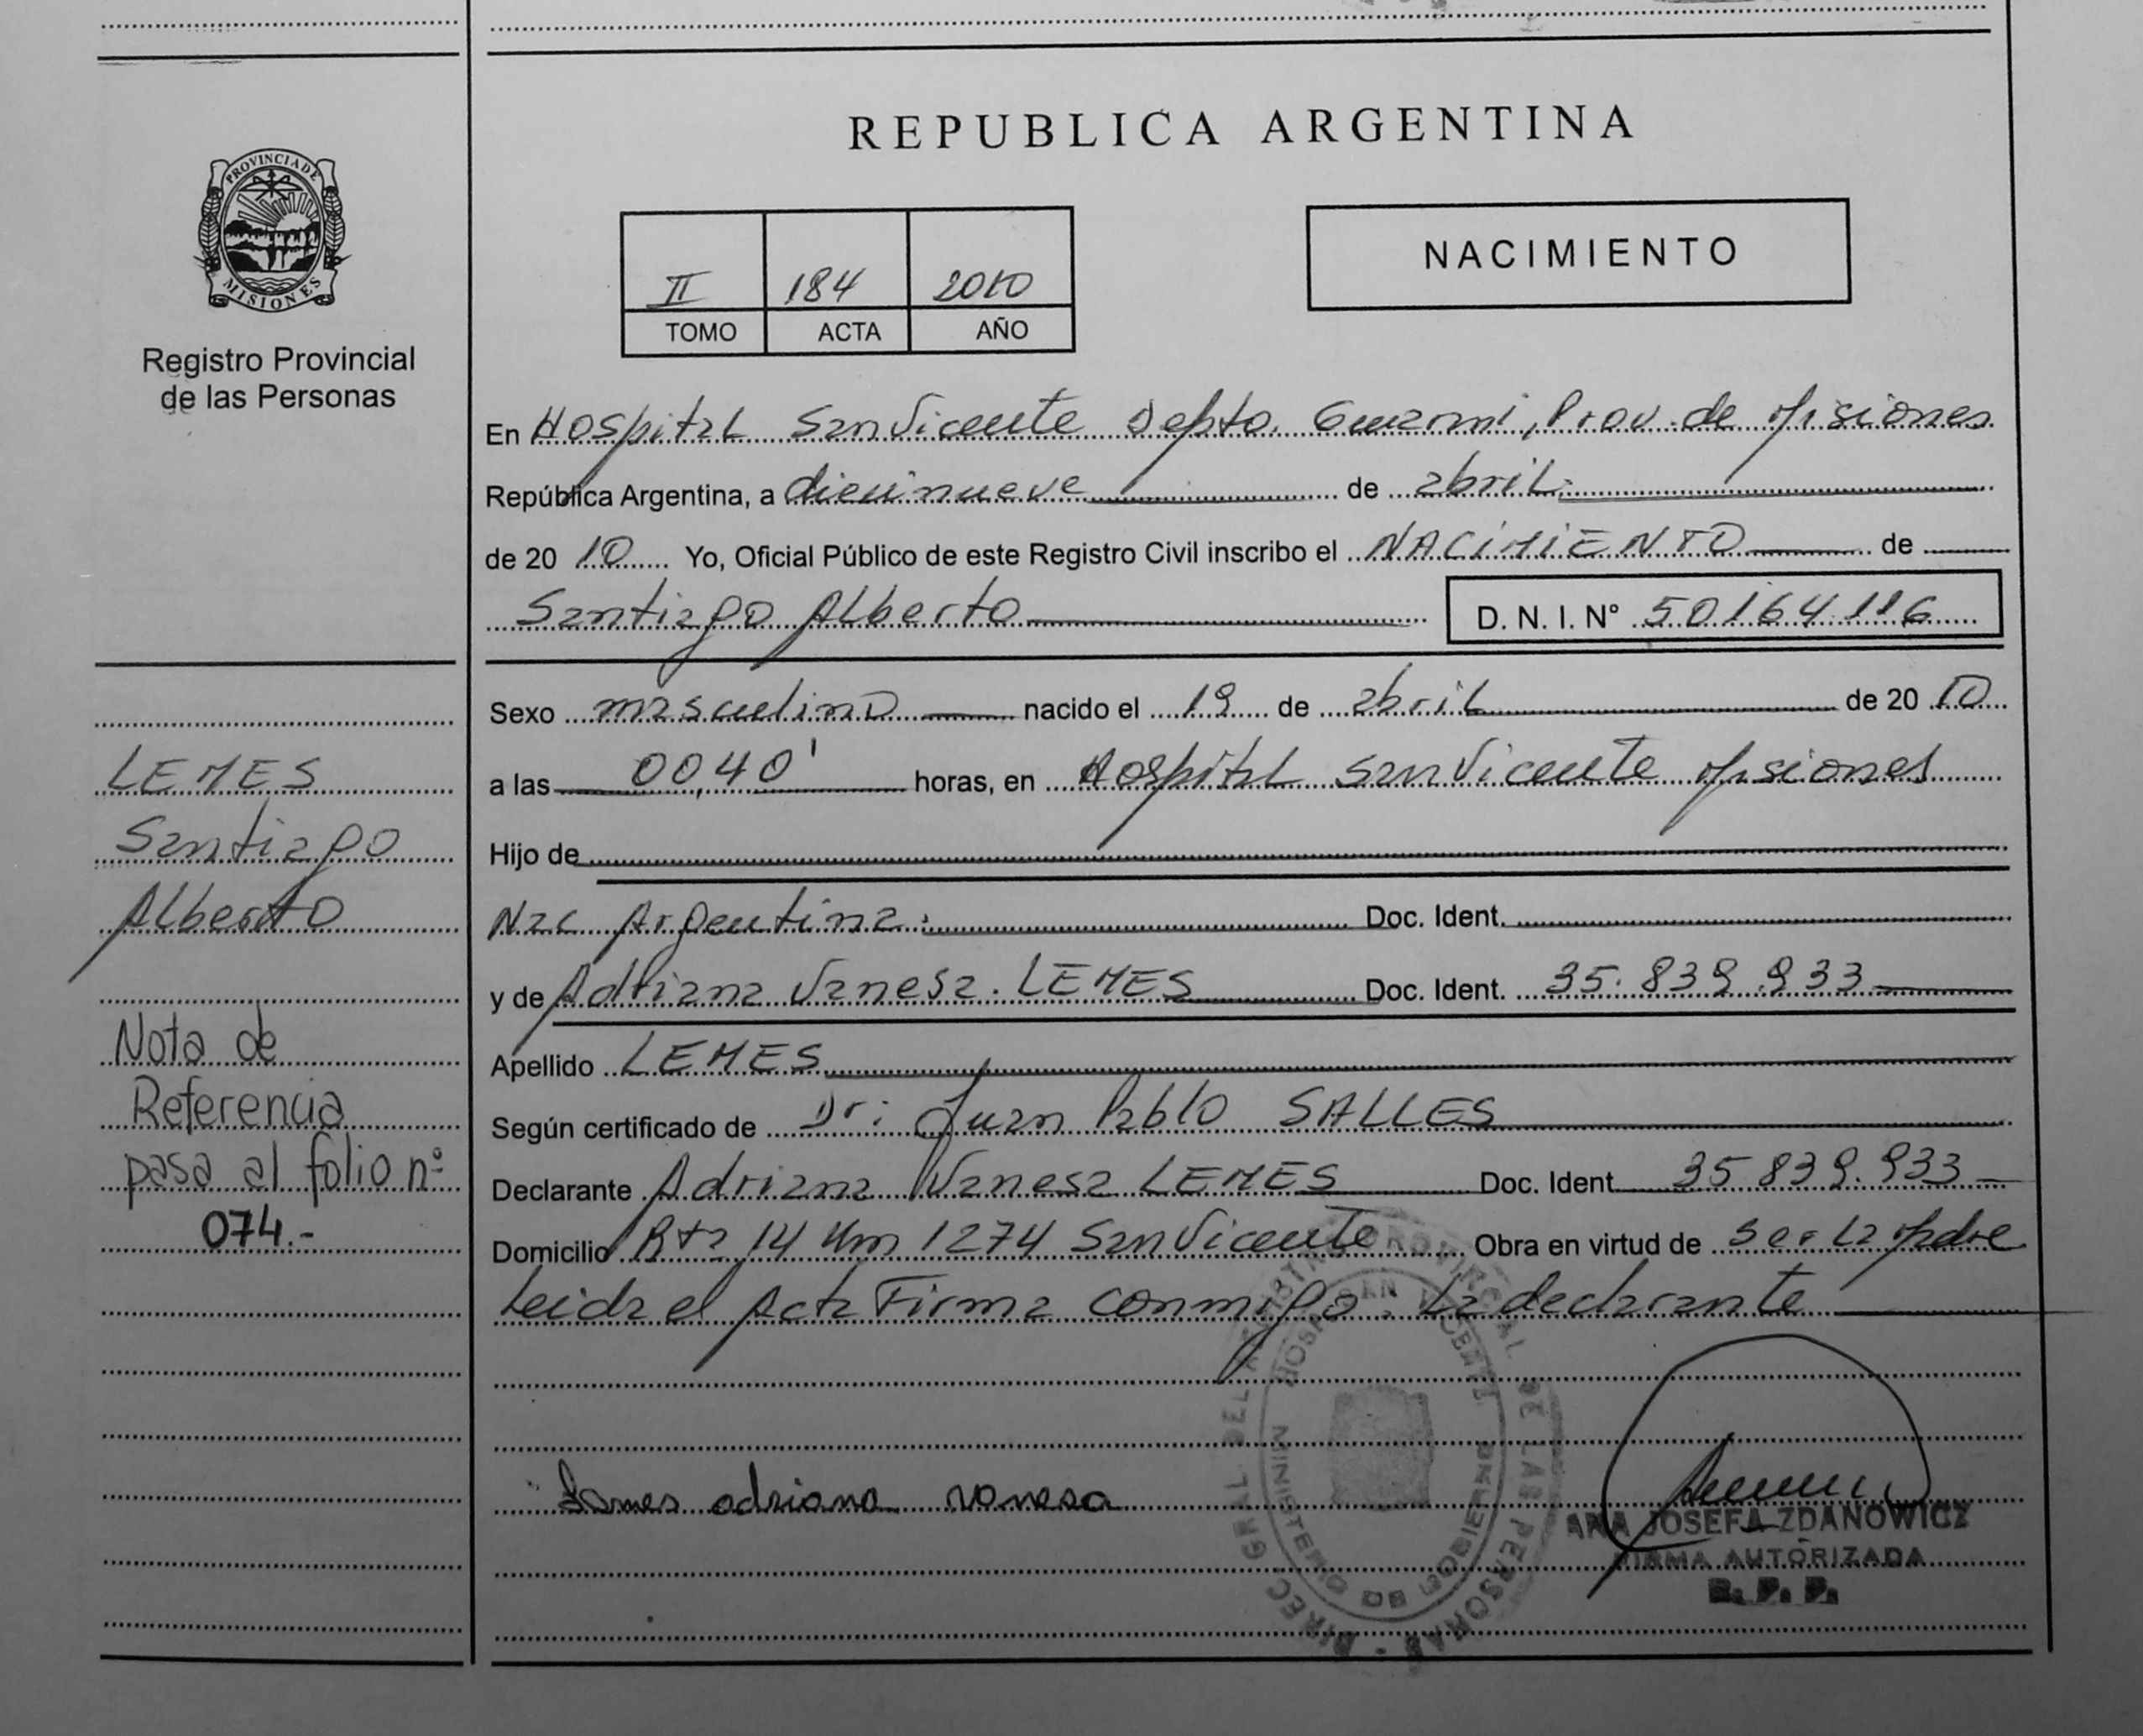 PROVINCIA DE
MISIONES
Registro Provincial
de las Personas
LEMES
Santiago
Alberto
Nota de
Referencia
pasa al folio nº
074.-
REPUBLICA ARGENTINA
II 184 2010
TOMO ACTA AÑO
NACIMIENTO
En Hospital San Vicente Depto. Guarani, Prov. de Misiones
República Argentina, a diecinueve de abril
de 20 10 Yo, Oficial Público de este Registro Civil inscribo el NACIMIENTO de
Santiago Alberto D. N. I. N° 50164.116
Sexo masculino nacido el 19 de abril de 20 10
a las 00,40' horas, en Hospital San Vicente Misiones
Hijo de
Nac Argentina. Doc. Ident.
y de Adriana Vanesa. LEMES Doc. Ident. 35.839.933
Apellido LEMES
Según certificado de Dr: Juan Pablo SALLES
Declarante Adriana Vanesa LEMES Doc. Ident. 35 839.933
Domicilio Rta 14 Km 1274 San Vicente Obra en virtud de ser la Madre
Leida el Acta Firma conmigo. La declarante
Lemes adriana vanesa
ANA JOSEFA ZDANOWICZ
FIRMA AUTORIZADA
R. P. P.
DIREC. GRAL. DEL REGISTRO PROVINCIAL DE LAS PERSONAS
HOSP. SAN VICENTE
MINISTERIO DE GOBIERNO